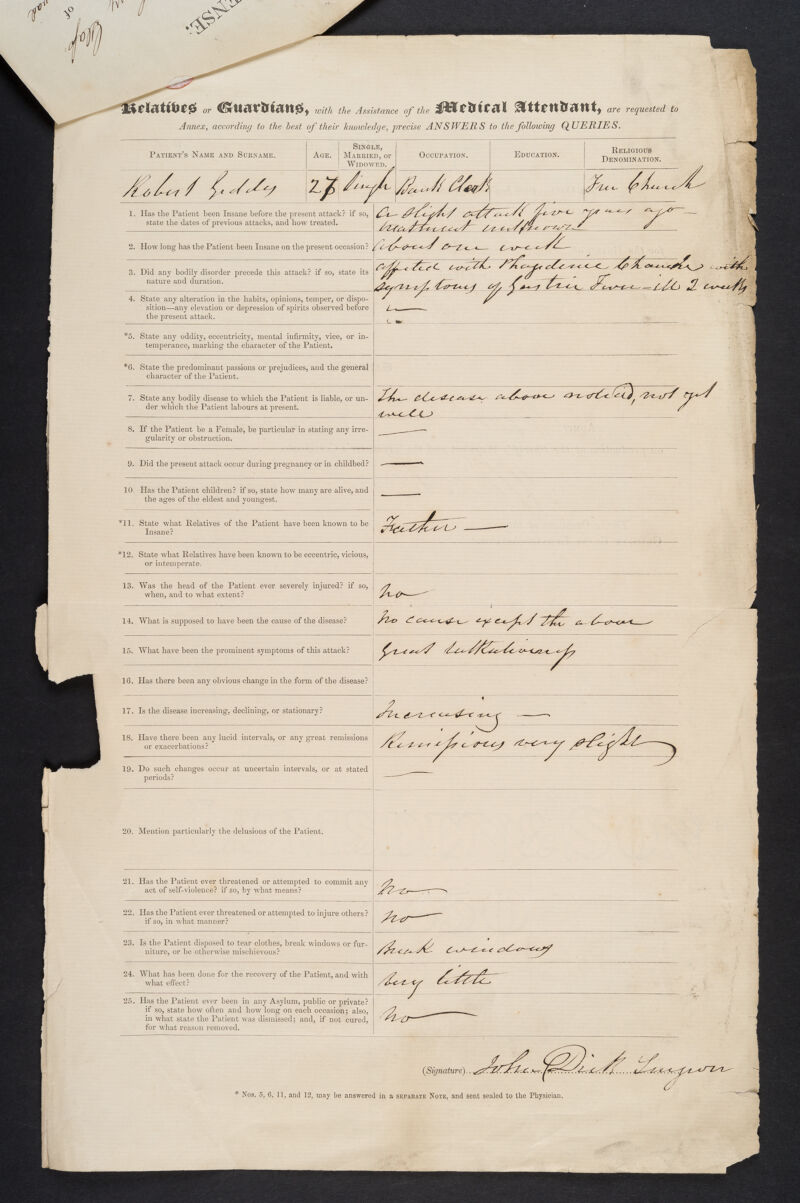 ENSE.
of
Relatives or Guardians, with the Assistance of the Medical Attendant, are requested to
Annex, according to the best of their knowledge, precise ANSWERS to the following QUERIES.
PATIENT'S NAME AND SURNAME. AGE. SINGLE, MARRIED, OR WIDOWED. OCCUPATION. EDUCATION. RELIGIOUS DENOMINATION.
Robert Geddes 27 Single Bank Clerk Free Church
1. Has the Patient been Insane before the present attack? if so, state the dates of previous attacks, and how treated.
A slight attack five years ago —
treatment unknown
2. How long has the Patient been Insane on the present occasion?
About one week
3. Did any bodily disorder precede this attack? if so, state its nature and duration.
affected with Phagedenic Chancre with
symptoms of Gastric Fever — ill 2 weeks
4. State any alteration in the habits, opinions, temper, or disposition—any elevation or depression of spirits observed before the present attack.
—
*5. State any oddity, eccentricity, mental infirmity, vice, or intemperance, marking the character of the Patient.
*6. State the predominant passions or prejudices, and the general character of the Patient.
7. State any bodily disease to which the Patient is liable, or under which the Patient labours at present.
The disease above noticed, not yet
well
8. If the Patient be a Female, be particular in stating any irregularity or obstruction.
—
9. Did the present attack occur during pregnancy or in childbed?
—
10. Has the Patient children? if so, state how many are alive, and the ages of the eldest and youngest.
—
*11. State what Relatives of the Patient have been known to be Insane?
Father —
*12. State what Relatives have been known to be eccentric, vicious, or intemperate.
13. Was the head of the Patient ever severely injured? if so, when, and to what extent?
No
14. What is supposed to have been the cause of the disease?
No cause except the above
15. What have been the prominent symptoms of this attack?
Great talkativeness
16. Has there been any obvious change in the form of the disease?
17. Is the disease increasing, declining, or stationary?
Increasing —
18. Have there been any lucid intervals, or any great remissions or exacerbations?
Remissions very slight
19. Do such changes occur at uncertain intervals, or at stated periods?
—
20. Mention particularly the delusions of the Patient.
21. Has the Patient ever threatened or attempted to commit any act of self-violence? if so, by what means?
No
22. Has the Patient ever threatened or attempted to injure others? if so, in what manner?
No
23. Is the Patient disposed to tear clothes, break windows or furniture, or be otherwise mischievous?
Break windows
24. What has been done for the recovery of the Patient, and with what effect?
Very little
25. Has the Patient ever been in any Asylum, public or private? if so, state how often and how long on each occasion; also, in what state the Patient was dismissed; and, if not cured, for what reason removed.
No
(Signature) John Dick Surgeon
* Nos. 5, 6, 11, and 12, may be answered in a SEPARATE NOTE, and sent sealed to the Physician.